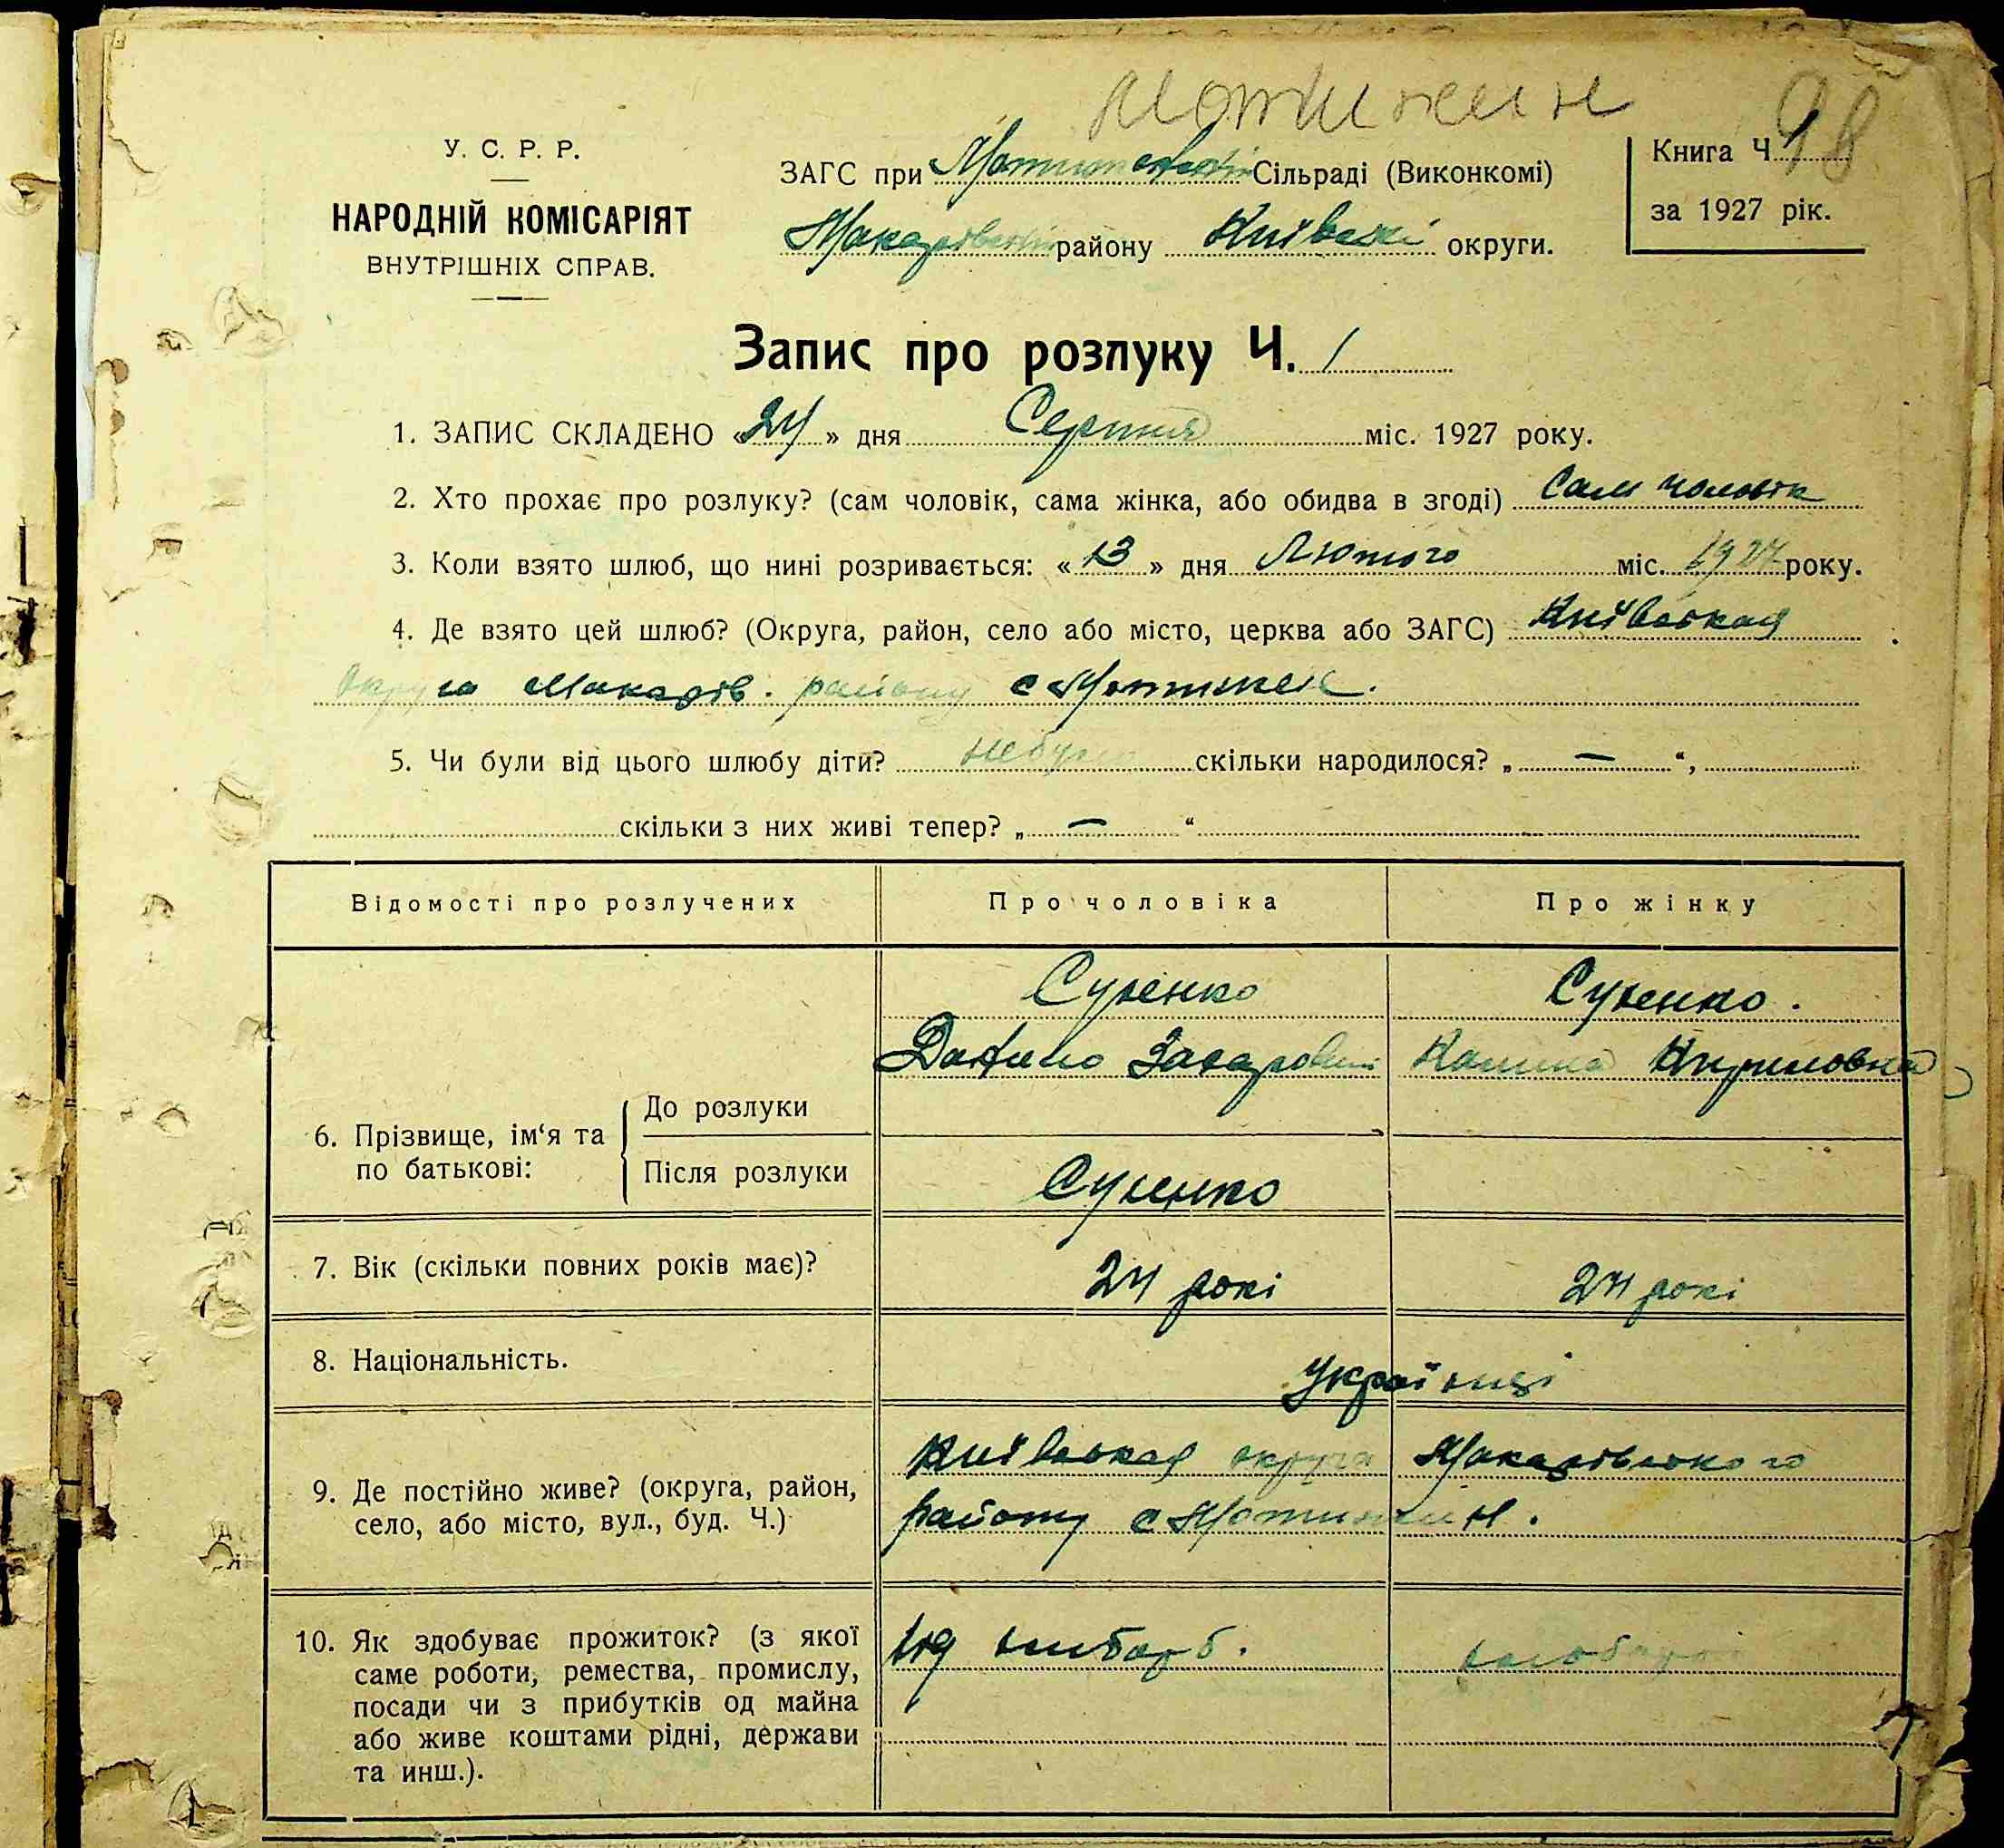 Мотижин
98
У. С. Р. Р.
НАРОДНІЙ КОМІСАРІЯТ
ВНУТРІШНІХ СПРАВ.
ЗАГС при Сільраді (Виконкомі)
Макарівськ району Київськ округи.
Книга Ч. 1
за 1927 рік.
Запис про розлуку Ч. 1
1. ЗАПИС СКЛАДЕНО «24» дня Серпня міс. 1927 року.
2. Хто прохає про розлуку? (сам чоловік, сама жінка, або обидва в згоді) Сам чоловік
3. Коли взято шлюб, що нині розривається: «13» дня Лютого міс. 1927 року.
4. Де взято цей шлюб? (Округа, район, село або місто, церква або ЗАГС) Київськая
округа Макарів. району с Мотижен.
5. Чи були від цього шлюбу діти? небули скільки народилося? „ — “,
скільки з них живі тепер? „ — “
Відомості про розлучених
Про чоловіка
Про жінку
6. Прізвище, ім‘я та по батькові:
До розлуки
Після розлуки
Сученко
Данило Захарович
Сученко.
Кириловна
Сученко
7. Вік (скільки повних років має)?
24 рокі
24 рокі
8. Національність.
Українці
9. Де постійно живе? (округа, район,
село, або місто, вул., буд. Ч.)
Київськая округа Макарівського
району с Мотижин.
10. Як здобуває прожиток? (з якої
саме роботи, ремества, промислу,
посади чи з прибутків од майна
або живе коштами рідні, держави
та инш.).